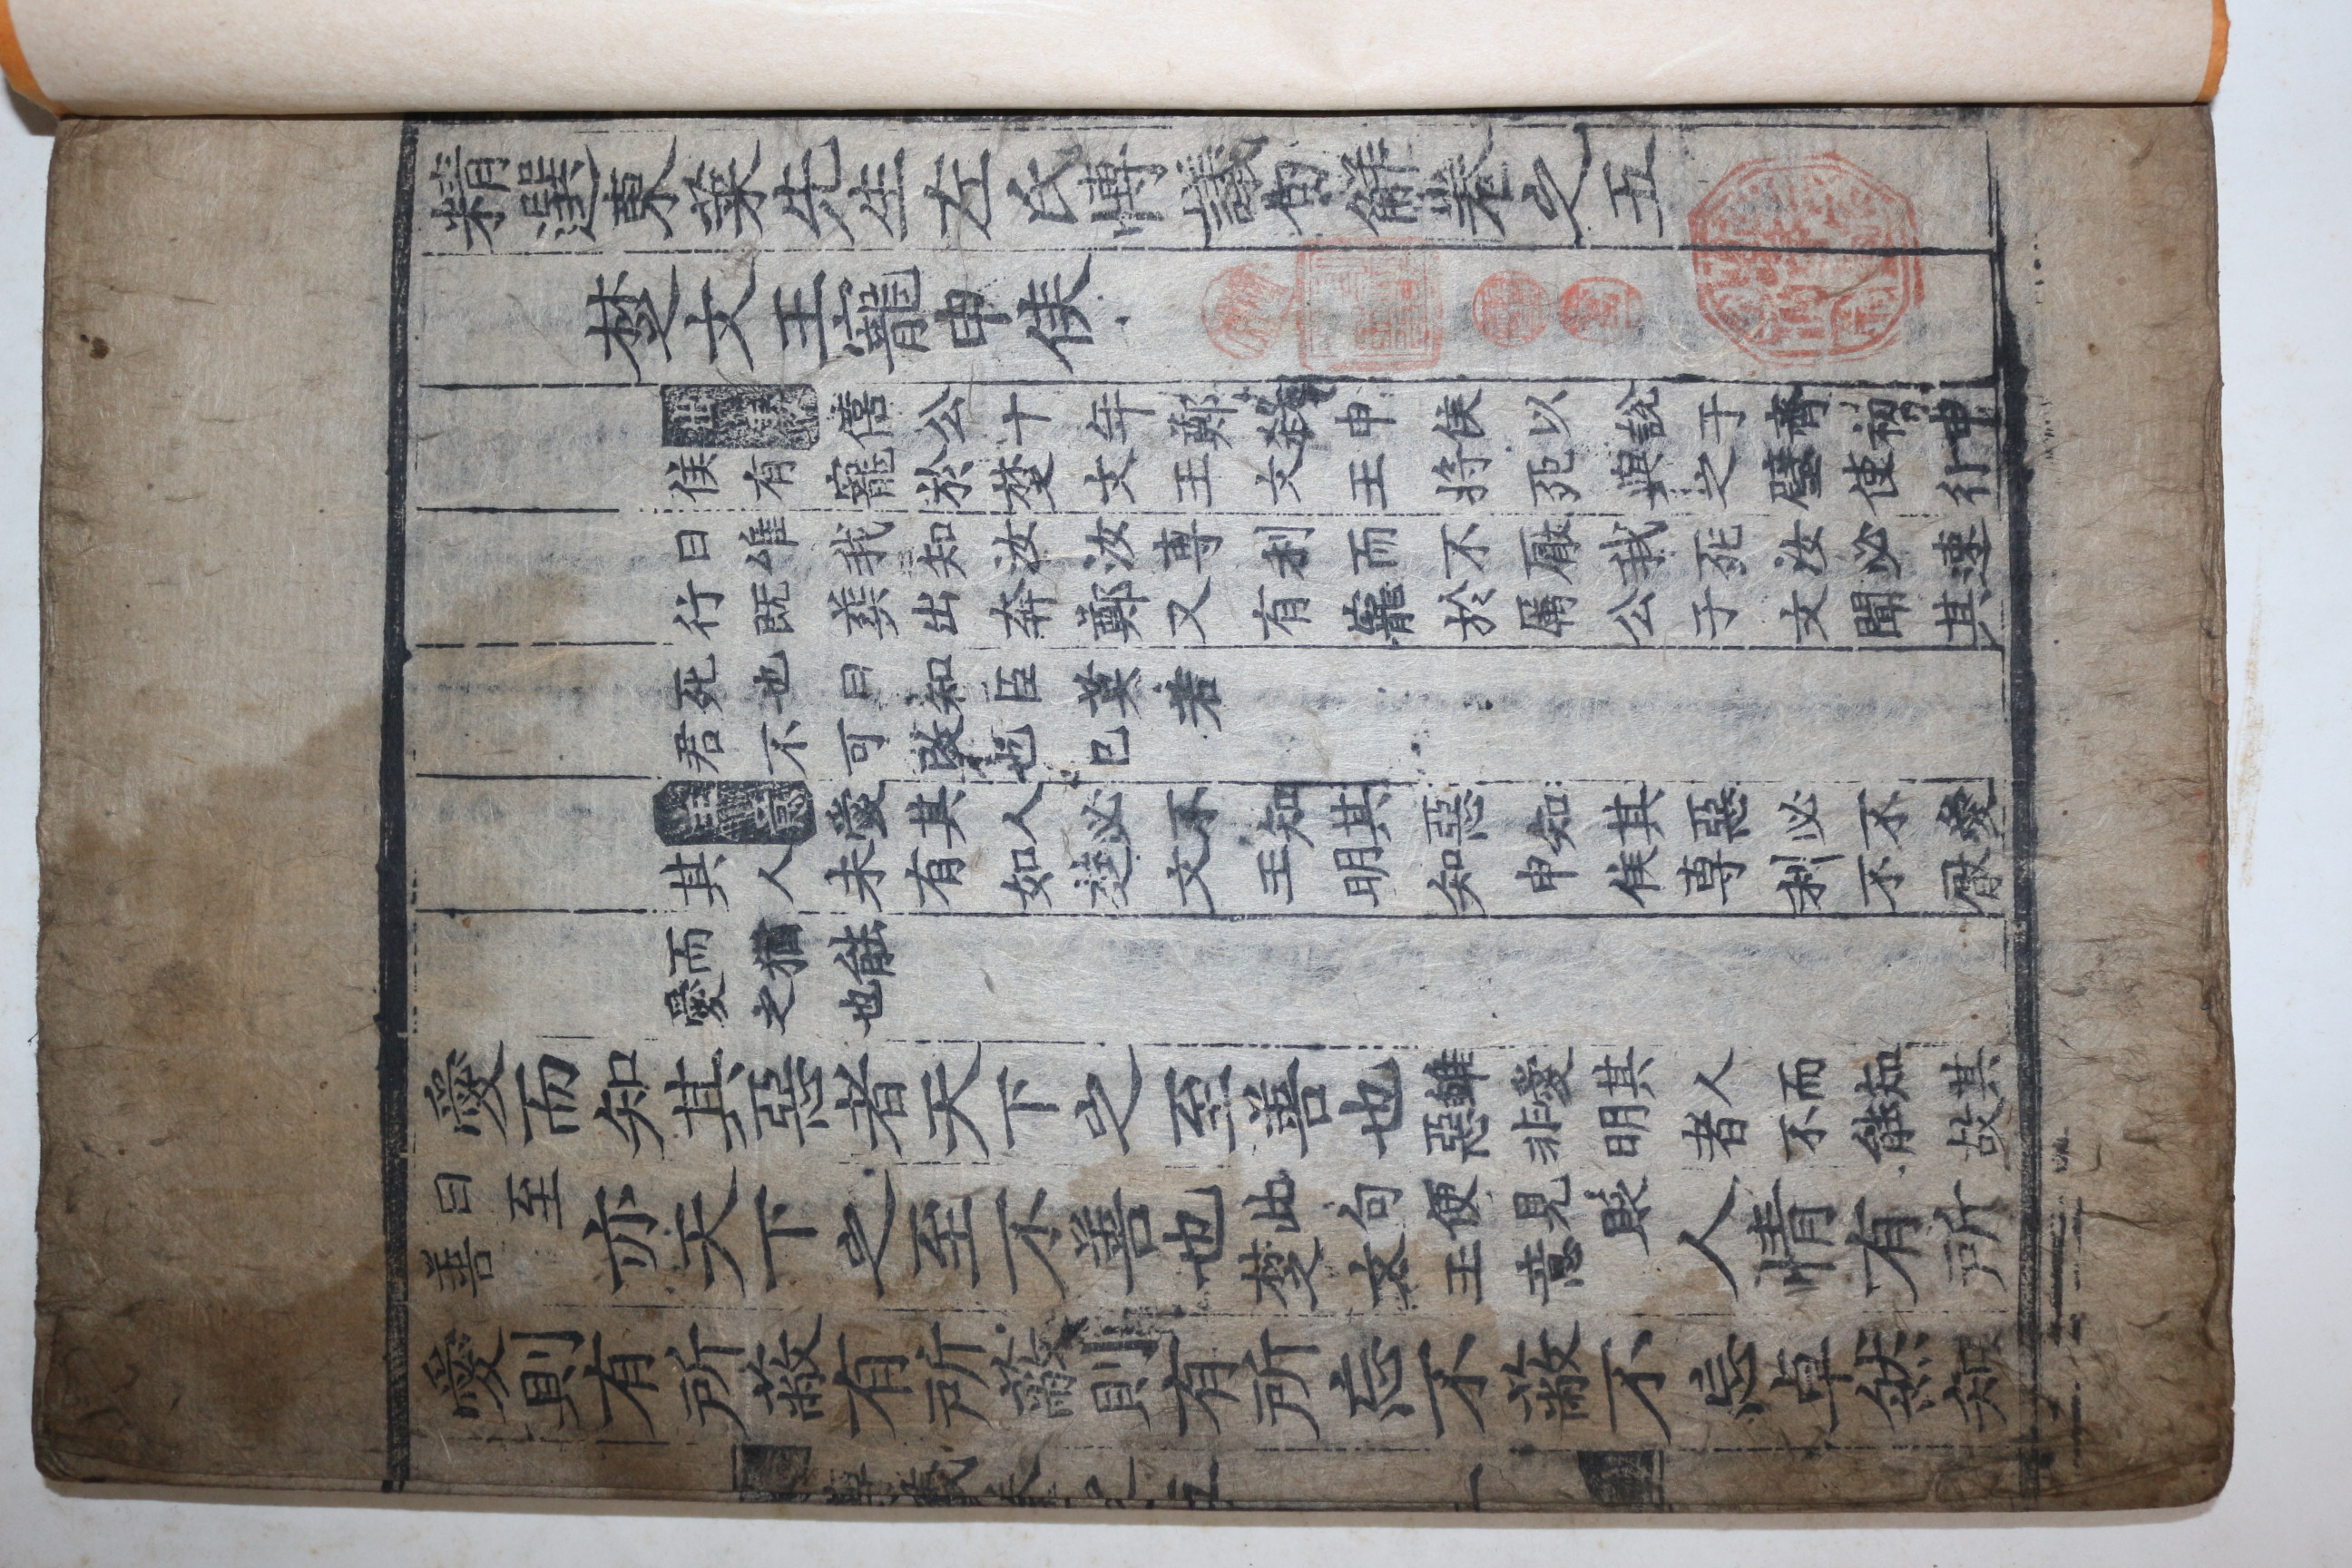 精選東萊先生左氏愽議句解卷之五
楚文王寵申侯
出處僖公十年鄭殺申侯以說于齊初申
侯有寵於楚文王文王將死與之璧使行
曰唯我知汝汝専利而不厭我死汝必速
行既葬出奔鄭又有寵於厲公子文聞其
死也曰知臣莫若
君不可改也已
主意愛其人必不知其惡知其惡必不愛
其人未有如楚文王明知申侯専利不厭
而猶能
愛之也
愛而知其惡者天下之至善也雖愛其人而知其
惡非明者不能故
曰至
善亦天下之至不善也此句便見貶
楚文王意人情有所
愛則有所蔽有所蔽則有所忘不蔽不忘卓然知